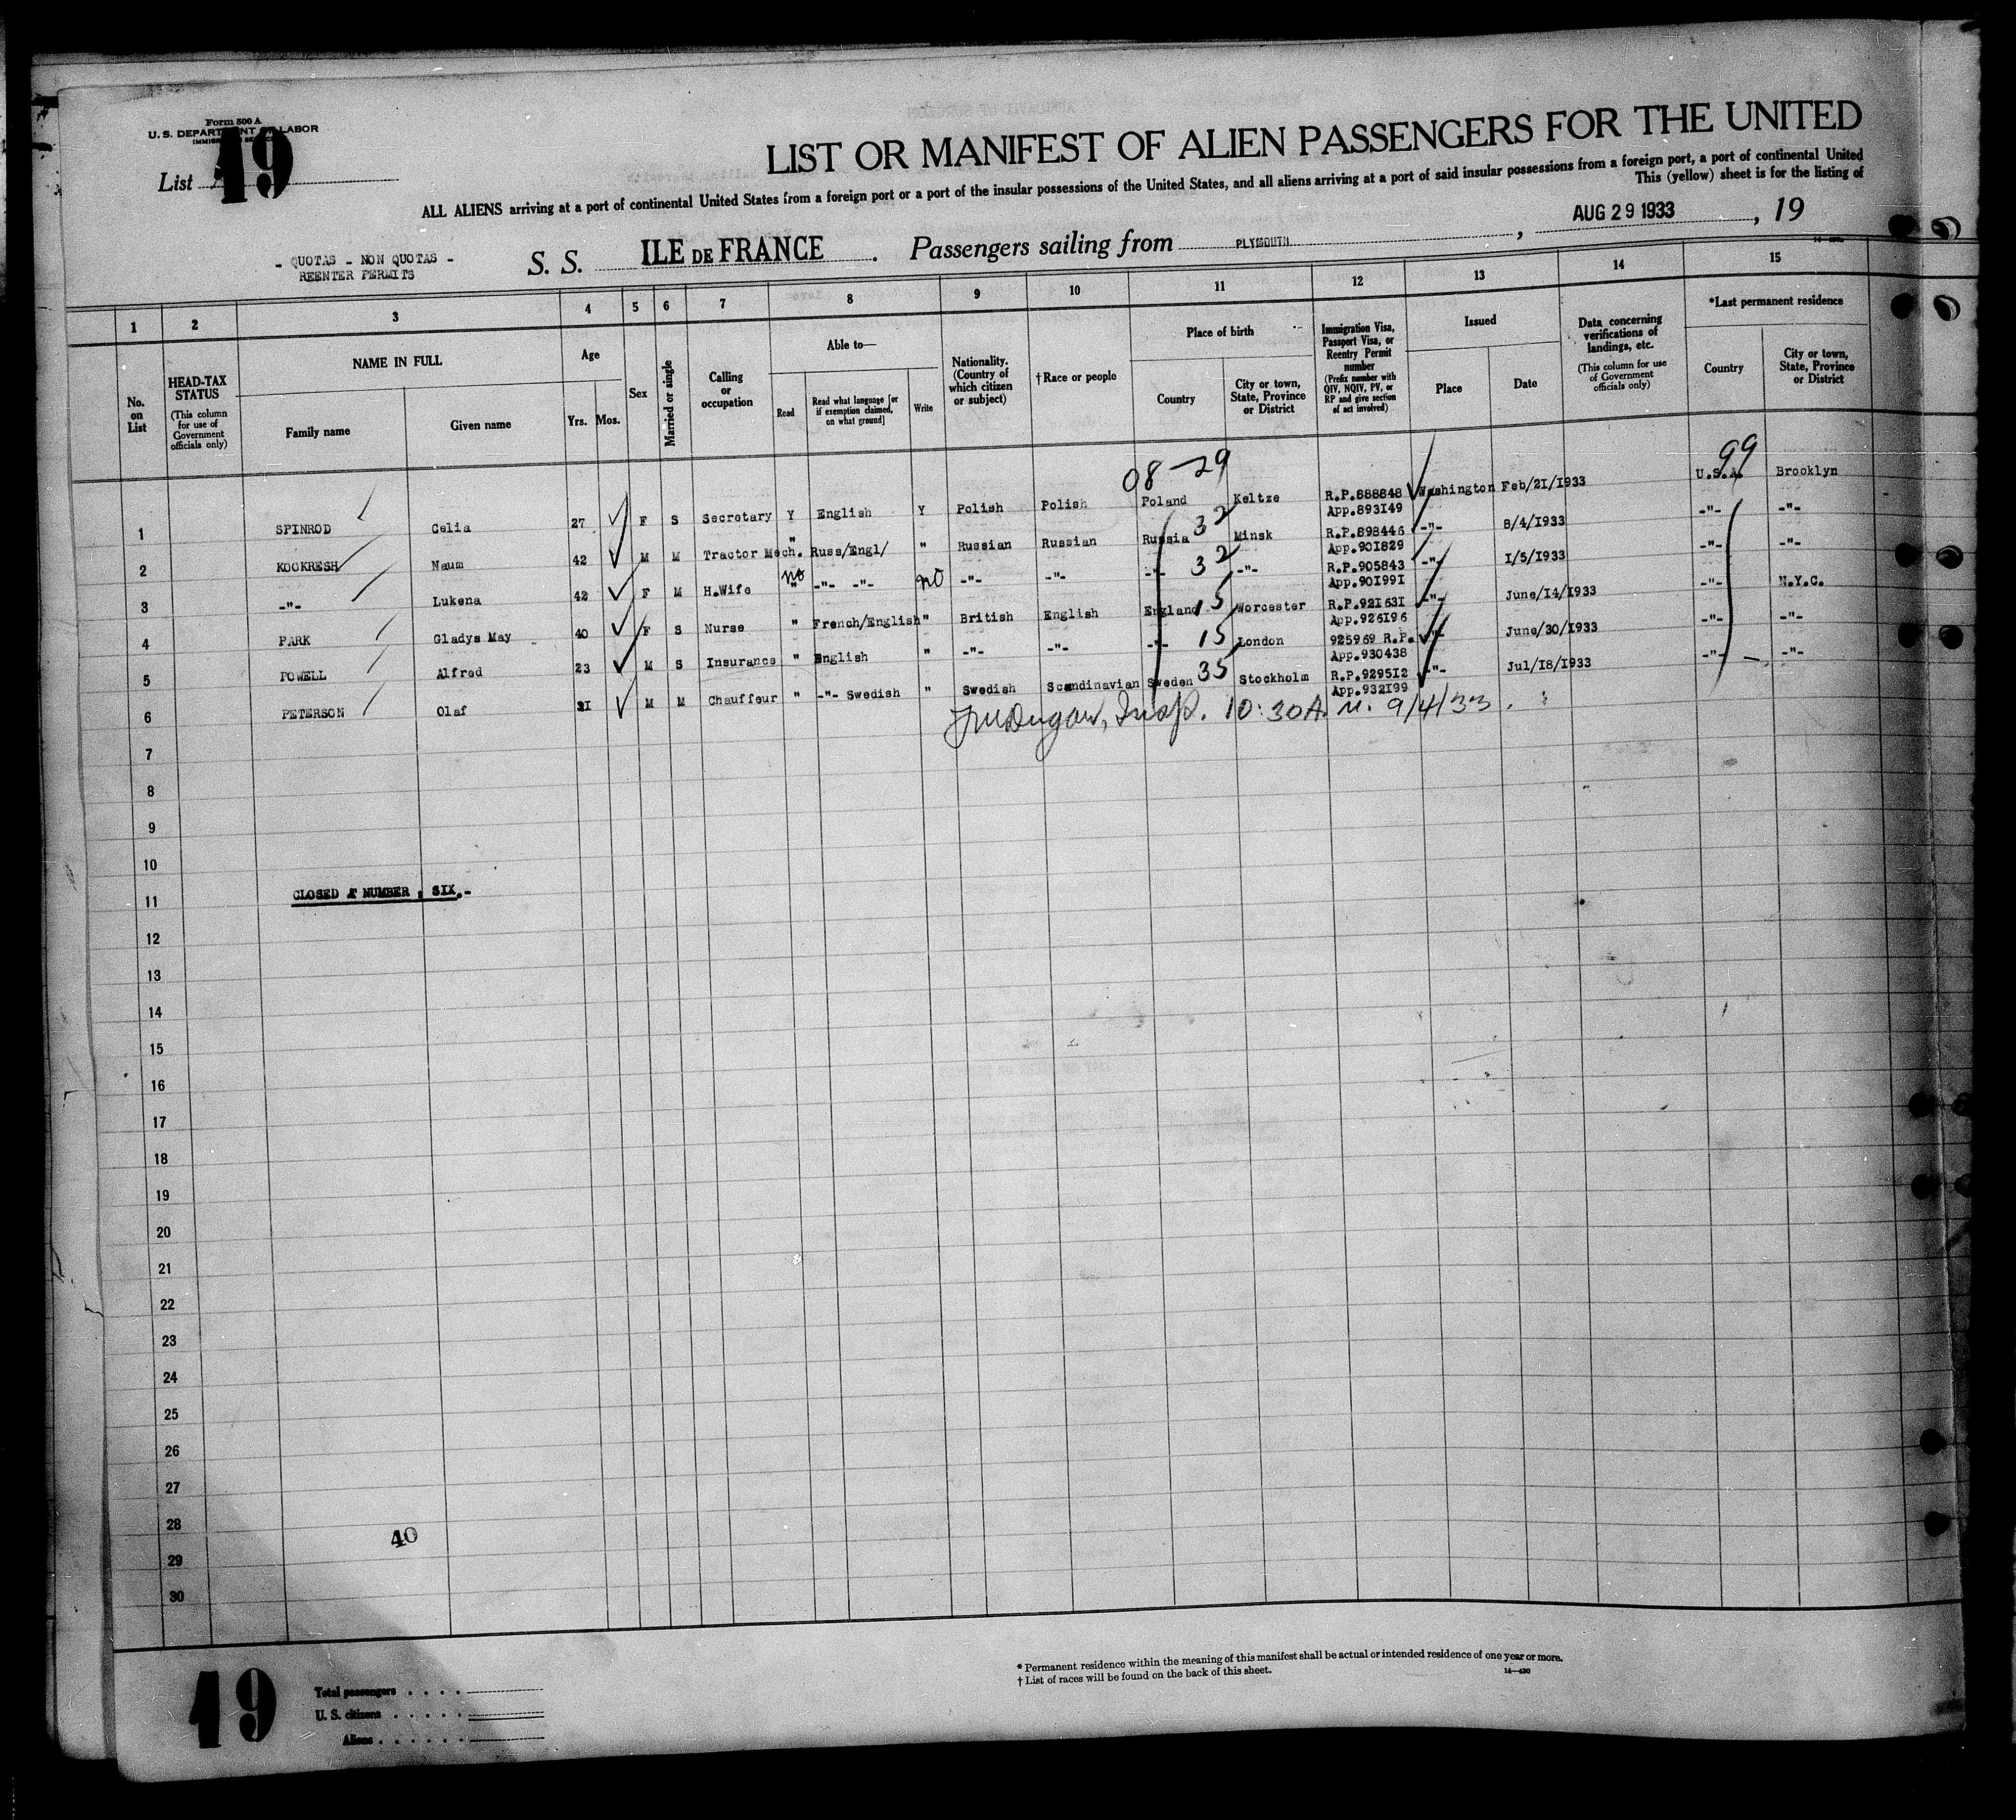 Form 500 A
U. S. DEPARTMENT OF LABOR
List 49
LIST OR MANIFEST OF ALIEN PASSENGERS FOR THE UNITED
ALL ALIENS arriving at a port of continental United States from a foreign port or a port of the insular possessions of the United States, and all aliens arriving at a port of said insular possessions from a foreign port, a port of continental United
This (yellow) sheet is for the listing of
- QUOTAS - NON QUOTAS -
REENTER PERMITS
S. S. ILE DE FRANCE . Passengers sailing from PLYMOUTH , AUG 29 1933 , 19
1 2 3 4 5 6 7 8 9 10 11 12 13 14 15
No. on List
HEAD-TAX STATUS
(This column for use of Government officials only)
NAME IN FULL
Family name Given name
Age
Yrs. Mos.
Sex
Married or single
Calling or occupation
Able to—
Read Read what language [or if exemption claimed, on what ground] Write
Nationality. (Country of which citizen or subject)
† Race or people
Place of birth
Country City or town, State, Province or District
Immigration Visa, Passport Visa, or Reentry Permit number
(Prefix number with QIV, NQIV, PV, or RP and give section of act involved)
Issued
Place Date
Data concerning verifications of landings, etc.
(This column for use of Government officials only)
*Last permanent residence
Country City or town, State, Province or District
08-29 99
1 SPINROD Celia 27 F S Secretary Y English Y Polish Polish Poland Keltze R.P.888848 App.893149 Washington Feb/21/1933 U.S.A. Brooklyn
2 KOOKRESH Naum 42 M M Tractor Mech. " Russ/Engl/ " Russian Russian Russia 32 Minsk R.P.898446 App.901829 -"- 8/4/1933 -"- -"-
3 -"- Lukena 42 F M H.Wife " no -"- -"- no -"- -"- -"- 32 -"- R.P.905843 App.901991 -"- 1/5/1933 -"- -"-
4 PARK Gladys May 40 F S Nurse " French/English " British English England 15 Worcester R.P.921631 App.926196 -"- June/14/1933 -"- N.Y.C.
5 POWELL Alfred 23 M S Insurance " English " -"- -"- -"- 15 London 925969 R.P. App.930438 -"- June/30/1933 -"- -"-
6 PETERSON Olaf 31 M M Chauffeur " -"- Swedish " Swedish Scandinavian Sweden 35 Stockholm R.P.929512 App.932199 -"- Jul/18/1933 -"- -"-
Insp. 10:30 A.M. 9/4/33.
7
8
9
10
11 CLOSED AT NUMBER : SIX.-
12
13
14
15
16
17
18
19
20
21
22
23
24
25
26
27
28
40
29
30
49
Total passengers
U. S. citizens
Aliens
* Permanent residence within the meaning of this manifest shall be actual or intended residence of one year or more.
† List of races will be found on the back of this sheet.
14—430